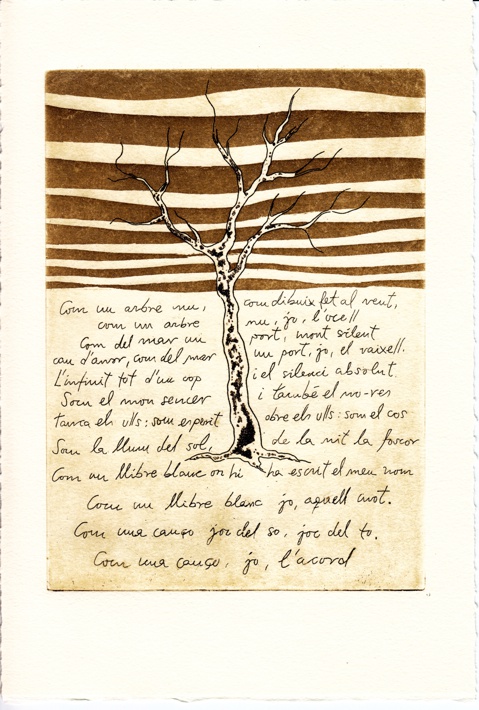 Com un arbre nu, com dibuix fet al vent,
com un arbre nu, jo, l'ocell
Com del mar un port, mont silent
cau d'amor, com del mar un port, jo, el vaixell.
L'infinit tot d'un cop i el silenci absolut
Som el mon sencer i també el no-res
tanca els ulls: som esperit obre els ulls: som el cos
Som la llum del sol, de la nit la foscor
Com un llibre blanc on hi ha escrit el meu nom
Com un llibre blanc jo, aquell mot.
Com una canço joc del so, joc del to.
Com una canço, jo, l'acord